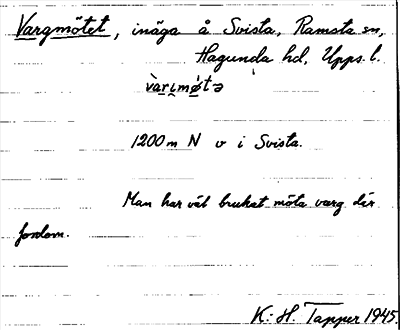 Vargmötet, inäga å Svista, Ramsta sn,
Hagunda hd, Upps. l.
1200 m N v i Svista.
Man har väl brukat möta varg där
fordom.
K. H. Tapper 1945.